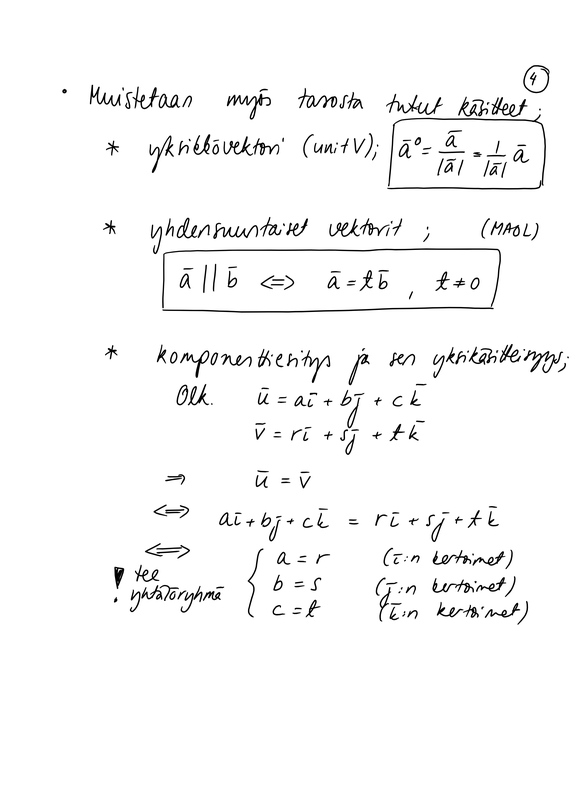 4
• Muistetaan myös tasosta tutut käsitteet;
* yksikkövektori (unitV); ā° = ā/|ā| = 1/|ā| ā
* yhdensuuntaiset vektorit ; (MAOL)
ā || b̄ <=> ā = t b̄ , t ≠ 0
* komponenttiesitys ja sen yksikäsitteisyys;
Olk. ū = aī + bj̄ + ck̄
v̄ = rī + sj̄ + tk̄
⇒ ū = v̄
<=> aī + bj̄ + ck̄ = rī + sj̄ + tk̄
<=> { a = r (ī:n kertoimet)
! tee b = s (j̄:n kertoimet)
yhtälöryhmä c = t (k̄:n kertoimet)